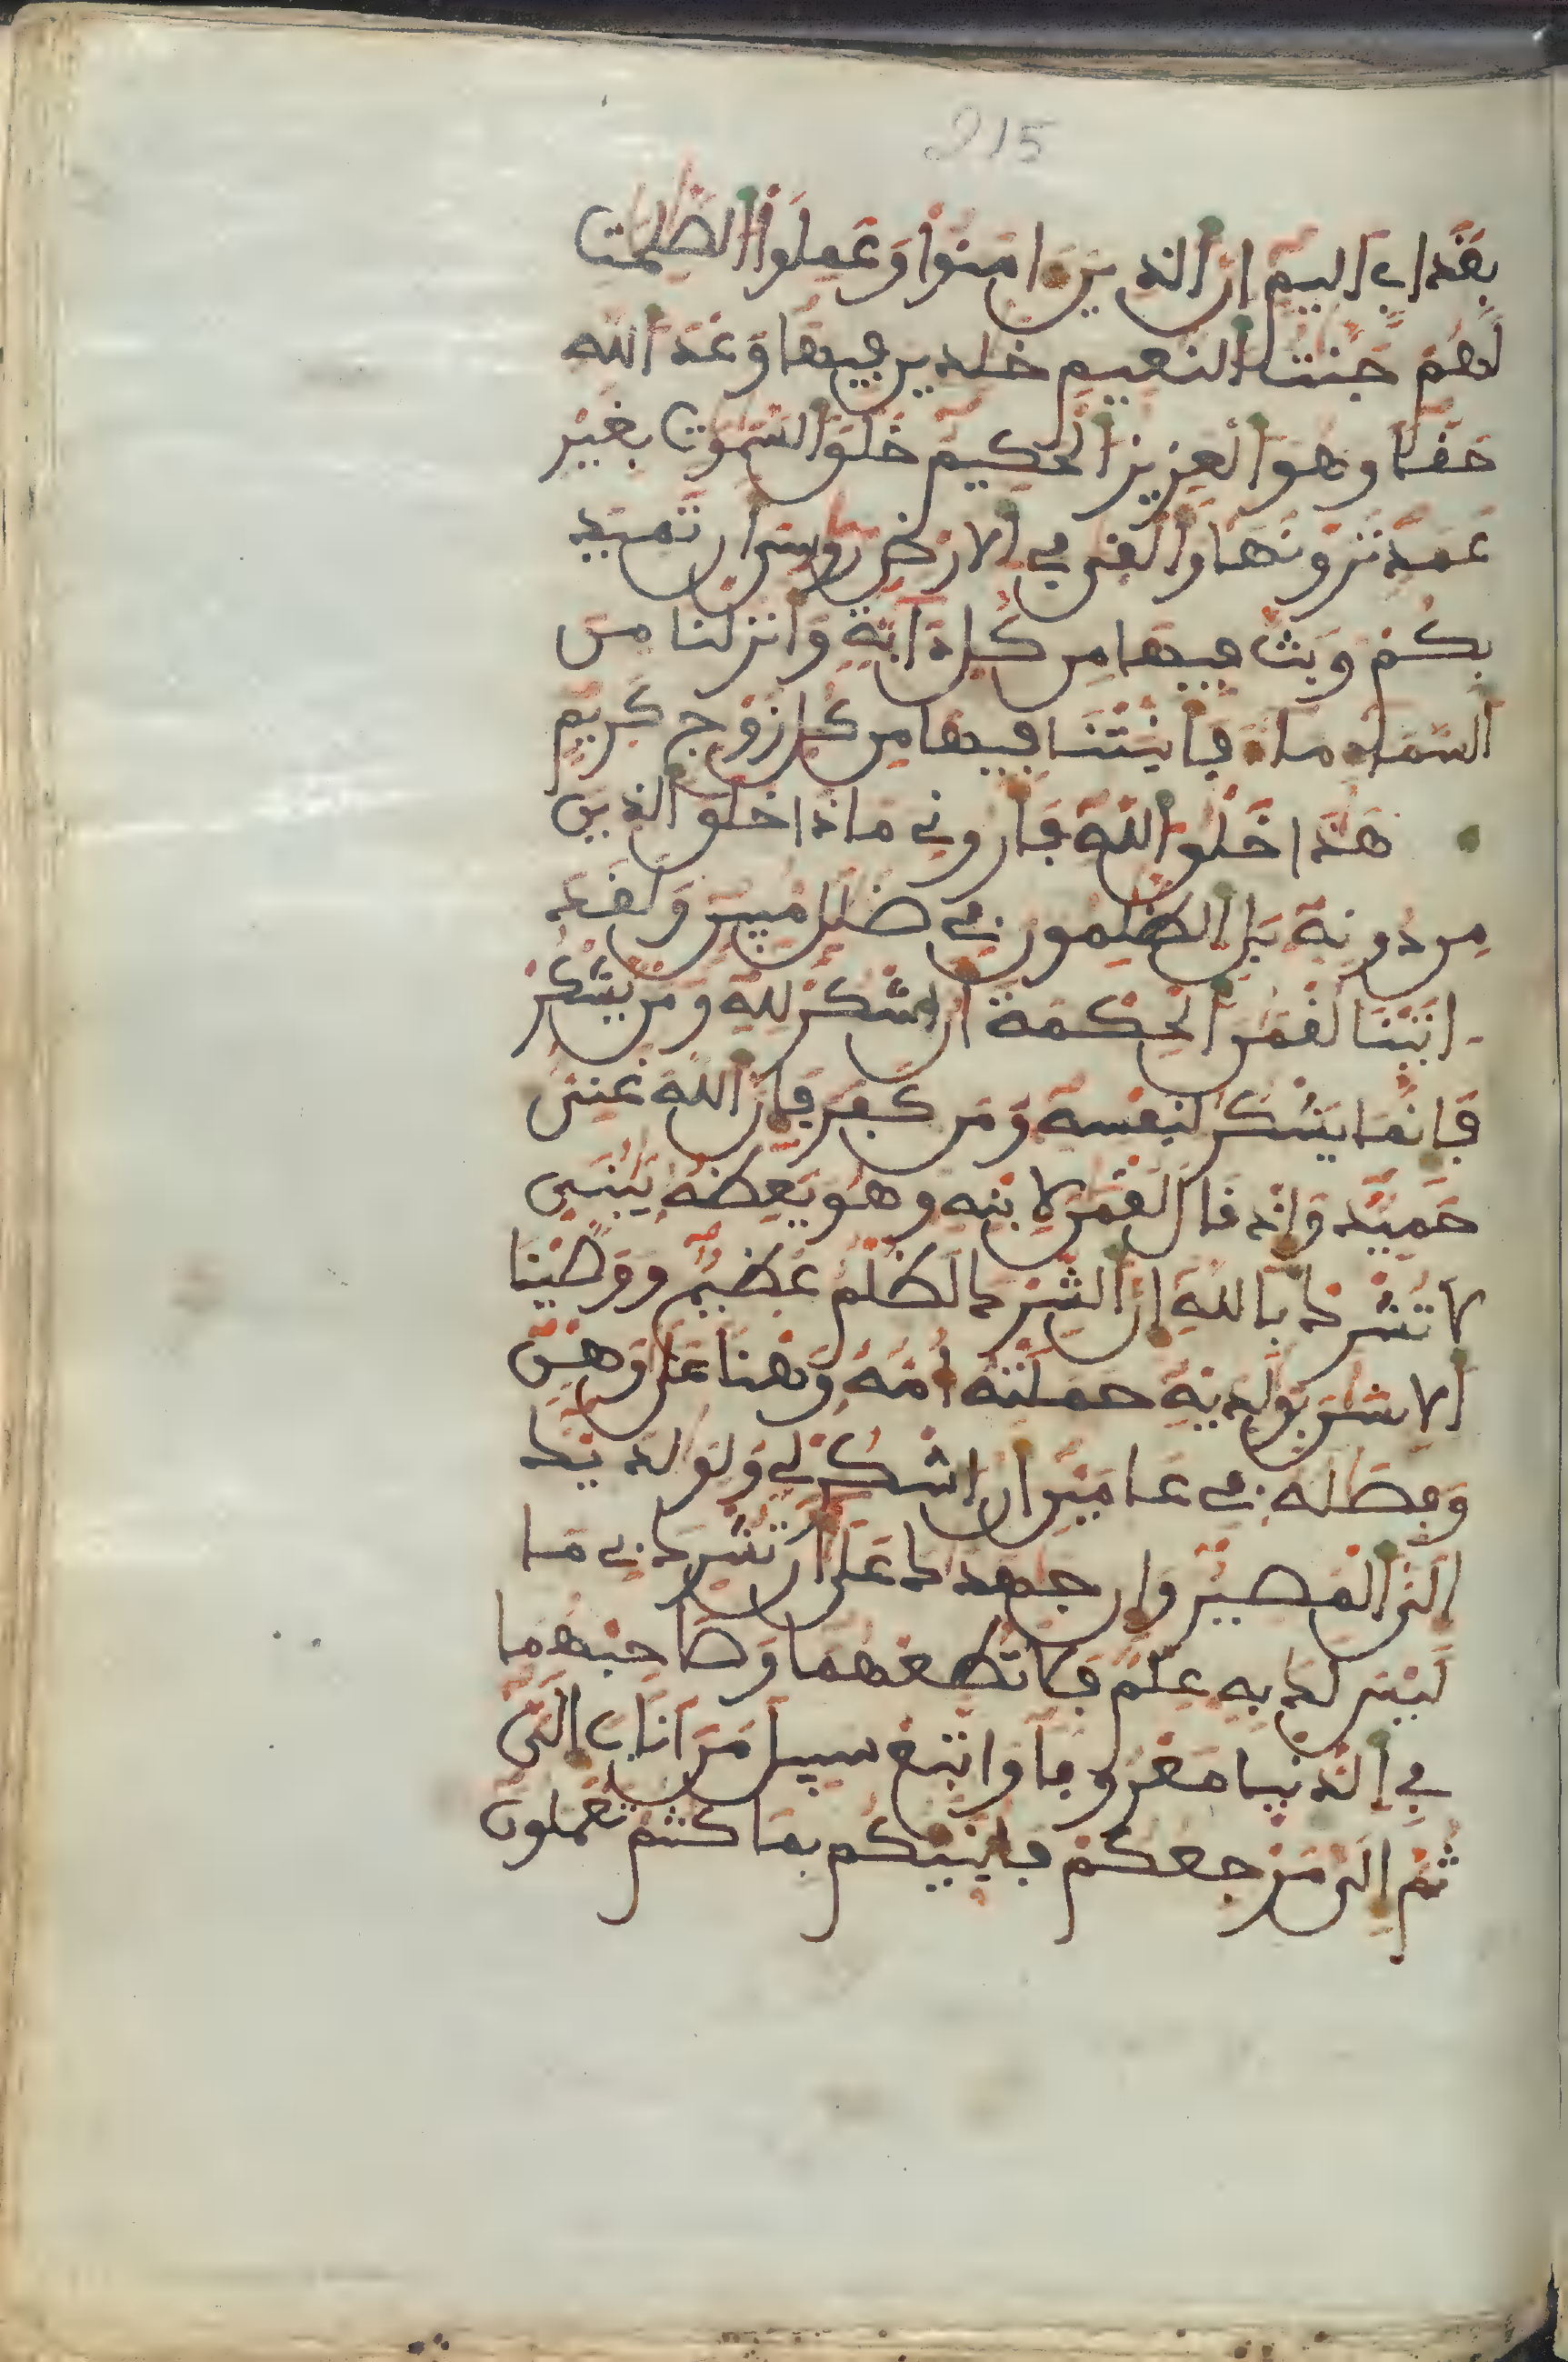 215
بعذاب اليم ان الذين ءامنوا وعملوا الصلحت
لهم جنت النعيم خلدين فيها وعد الله
حقا وهو العزيز الحكيم خلق السموت بغير
عمد ترونها والقى في الارض روسى ان تميد
بكم وبث فيها من كل دابة وانزلنا من
السماء ماء فانبتنا فيها من كل زوج كريم
هذا خلق الله فاروني ماذا خلق الذين
من دونه بل الظلمون في ضلل مبين ولقد
ءاتينا لقمن الحكمة ان اشكر لله ومن يشكر
فانما يشكر لنفسه ومن كفر فان الله غنى
حميد واذ قال لقمن لابنه وهو يعظه يبنى
لا تشرك بالله ان الشرك لظلم عظيم ووصينا
الانسن بولديه حملته امه وهنا على وهن
وفصله في عامين ان اشكر لي ولولديك
الى المصير وان جهدك على ان تشرك بي ما
ليس لك به علم فلا تطعهما وصاحبهما
في الدنيا معروفا واتبع سبيل من اناب الى
ثم الى مرجعكم فانبيكم بما كنتم تعملون